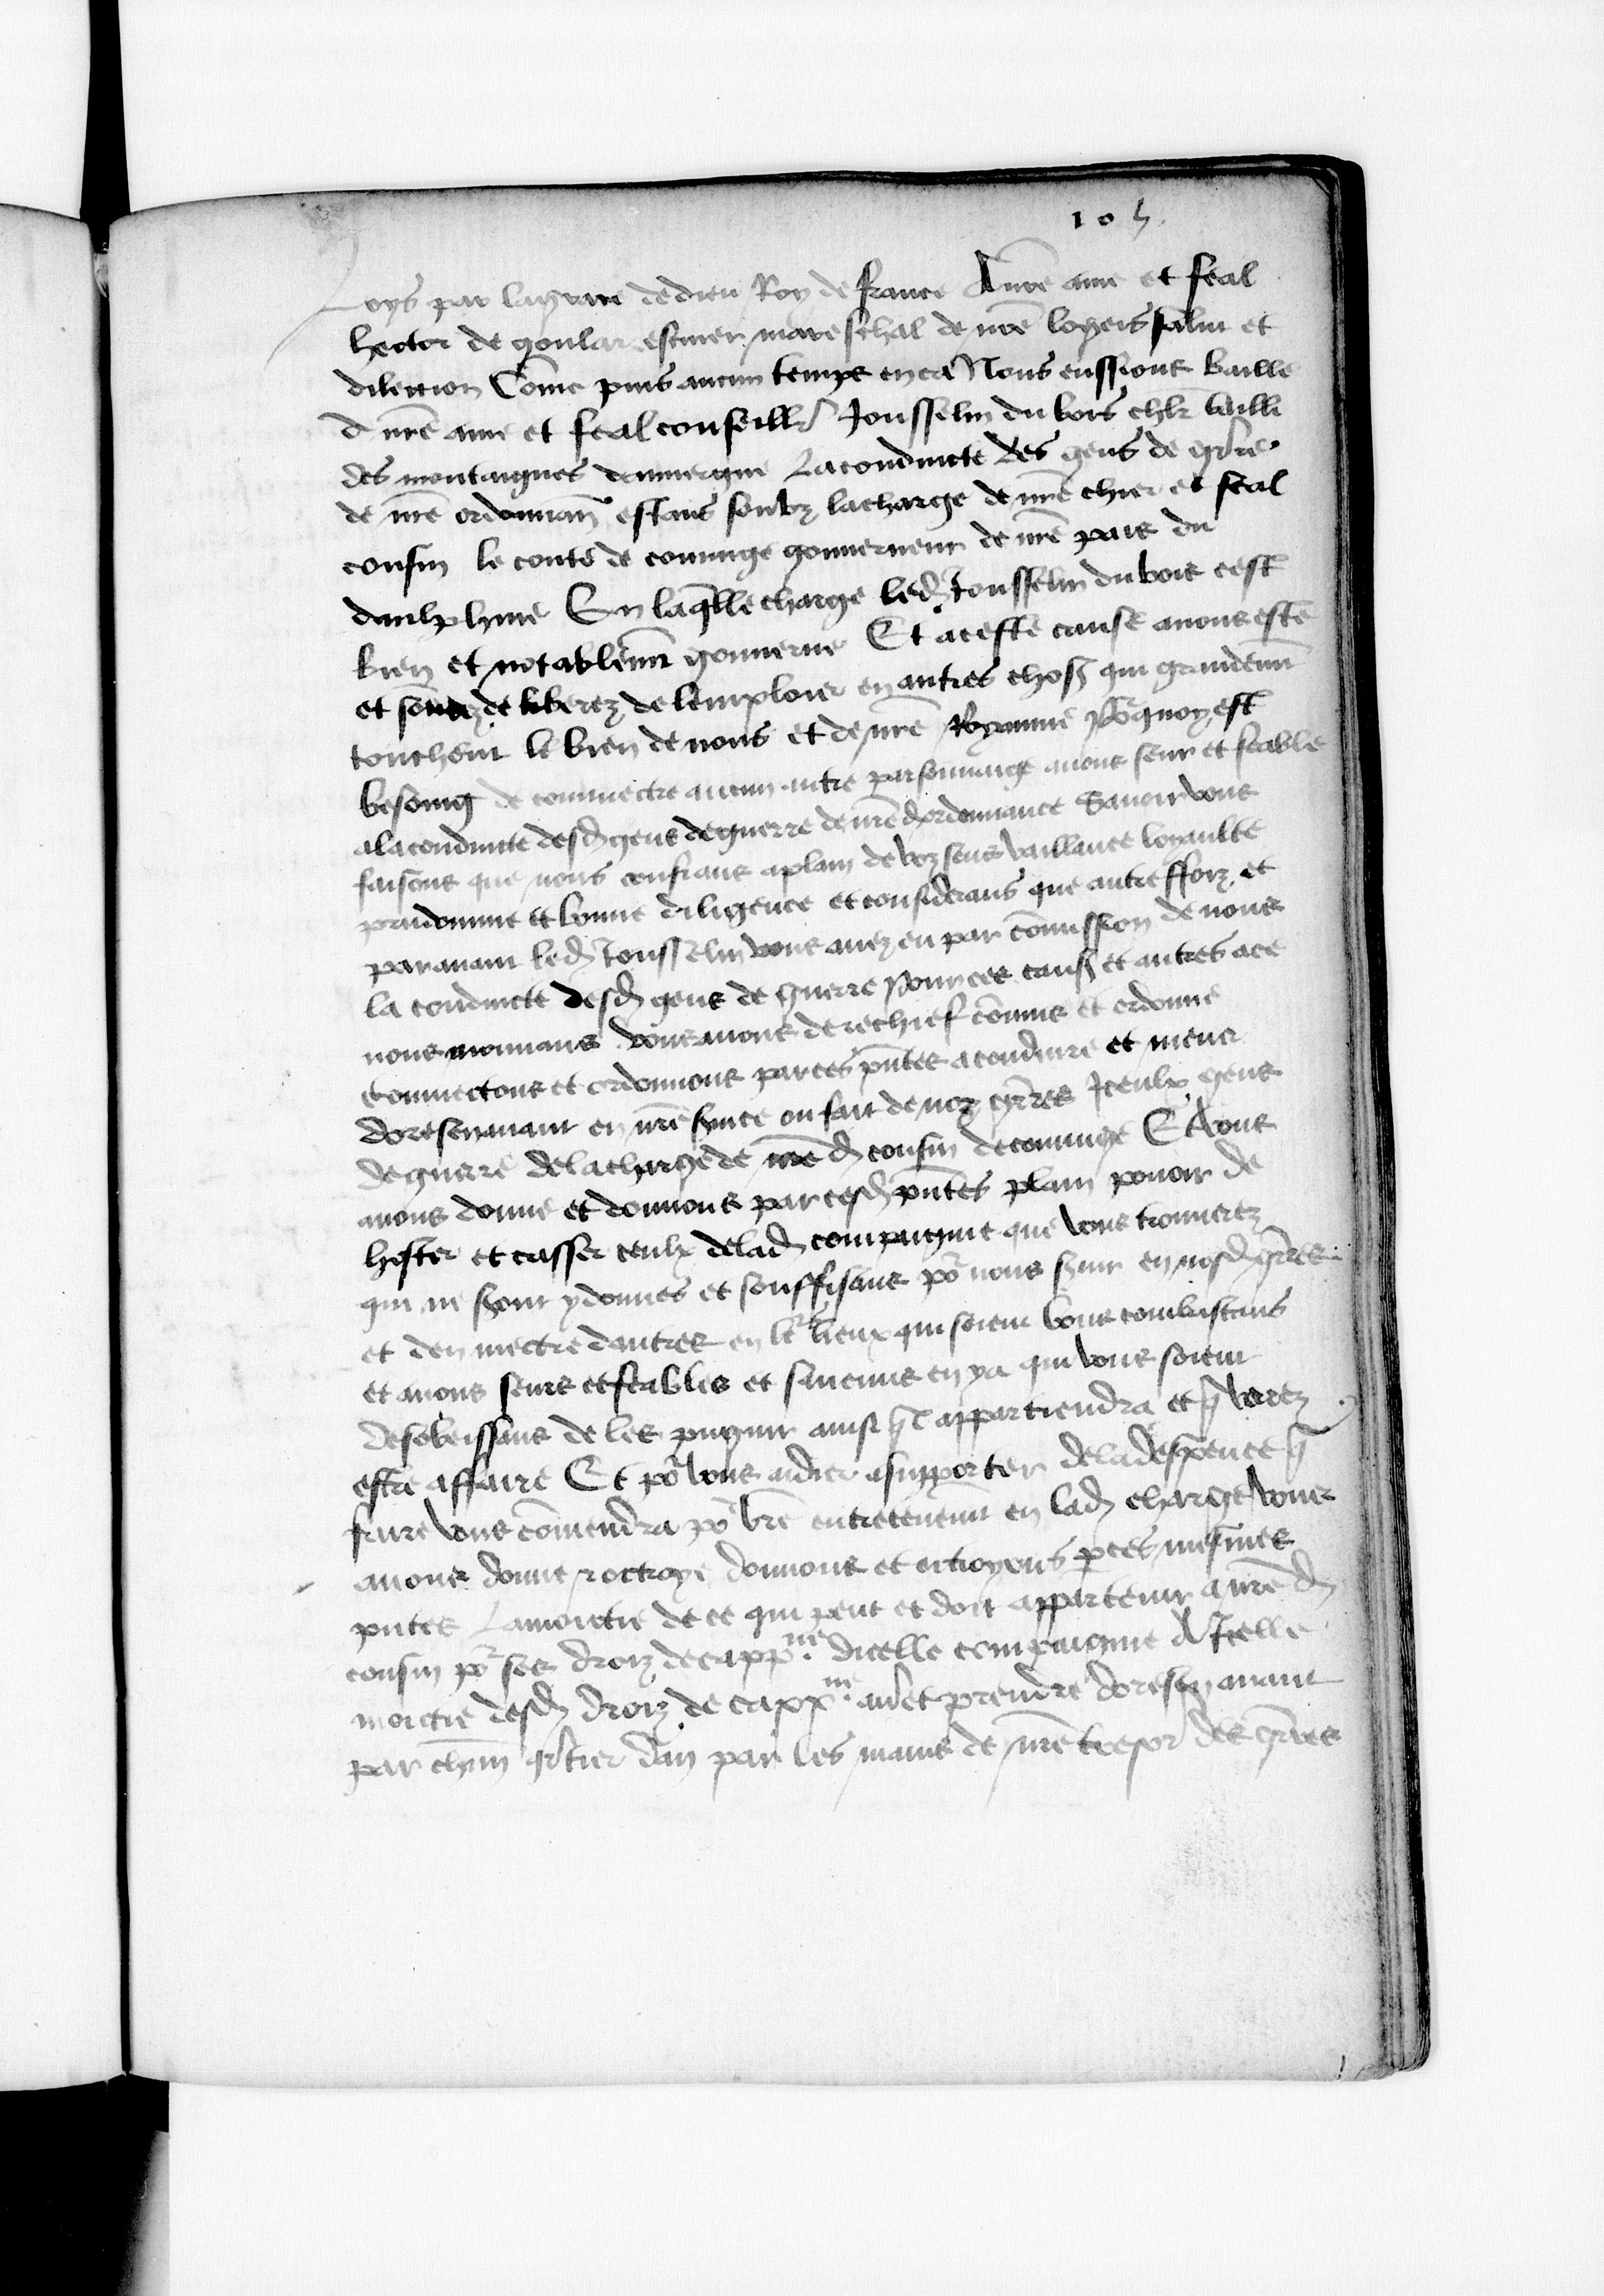 105
Loys par la grace de dieu Roy de france A nre ame et feal
hector de goular escuier mareschal de nre logeis salut et
dilection Come puis aucun temps en ca Nous eussions baille
a nre ame et feal conseillr Jousselin du bois chlr bailli
des montaignes dauuergne La conduicte des gens de grre
de nre ordonnan estans soubz la charge de nre chier et feal
cousin le conte de cominge gouuerneur de nre pais du
daulphine En laqlle charge led Jousselin du bois cest
bien et notablemt gouuerne Et a ceste cause auons este
et somes deliberez de lemploier en autres chos qui grandemt
touchent le bien de nous et de nre Royaume porquoy est
besoing de commectre aucun autre parsonnaige a nous seur et feable
a la conduicte desd gens de guerre de nred ordonnance Sauoir vous
faisons que nous confians a plain de voz sens vaillance loyaulte
preudommie et bonne diligence et considerans que autreffoiz et
parauant led Jousselin vous auez eu par comission de nous
la conduicte desd gens de guerre Pour ces caus et autres a ce
nous mouuans vous auons derechief comis et ordonne
commectons et ordonnons par ces pntes a conduire et mener
doresenauant en nre suice ou fait de noz grres Iceulx gens
de guerre de la charge de nred cousin de cominge Et vous
auons donne et donnons par cesd pntes plain pouoir de
hoster et casser ceulx de lad compaignie que vous trouuerez
qui ne seront ydonnes et souffisans por nous suir en nosd grres
et den mectre dautres en lrs lieux qui soient bons combatans
et a nous seurs et feables et si aucuns en ya qui vous soient
desobeissans de les pugnir ainsi ql appartiendra et q verrez
estre affaire Et por vous aidier a supporter de la despence q
faire vous conuiendra por vre entretenemt en lad charge vous
auons donne octroye donnons et octroyons p ces mesmes
pntes La moictie de ce qui peut et doit appartenir a nred
cousin por ses droiz de cappne dicelle compaignie A Icelle
moictie desd droiz de cappne auoir et prendre doresenauant
par chun qrtier dan par les mains de nre tresor des grres